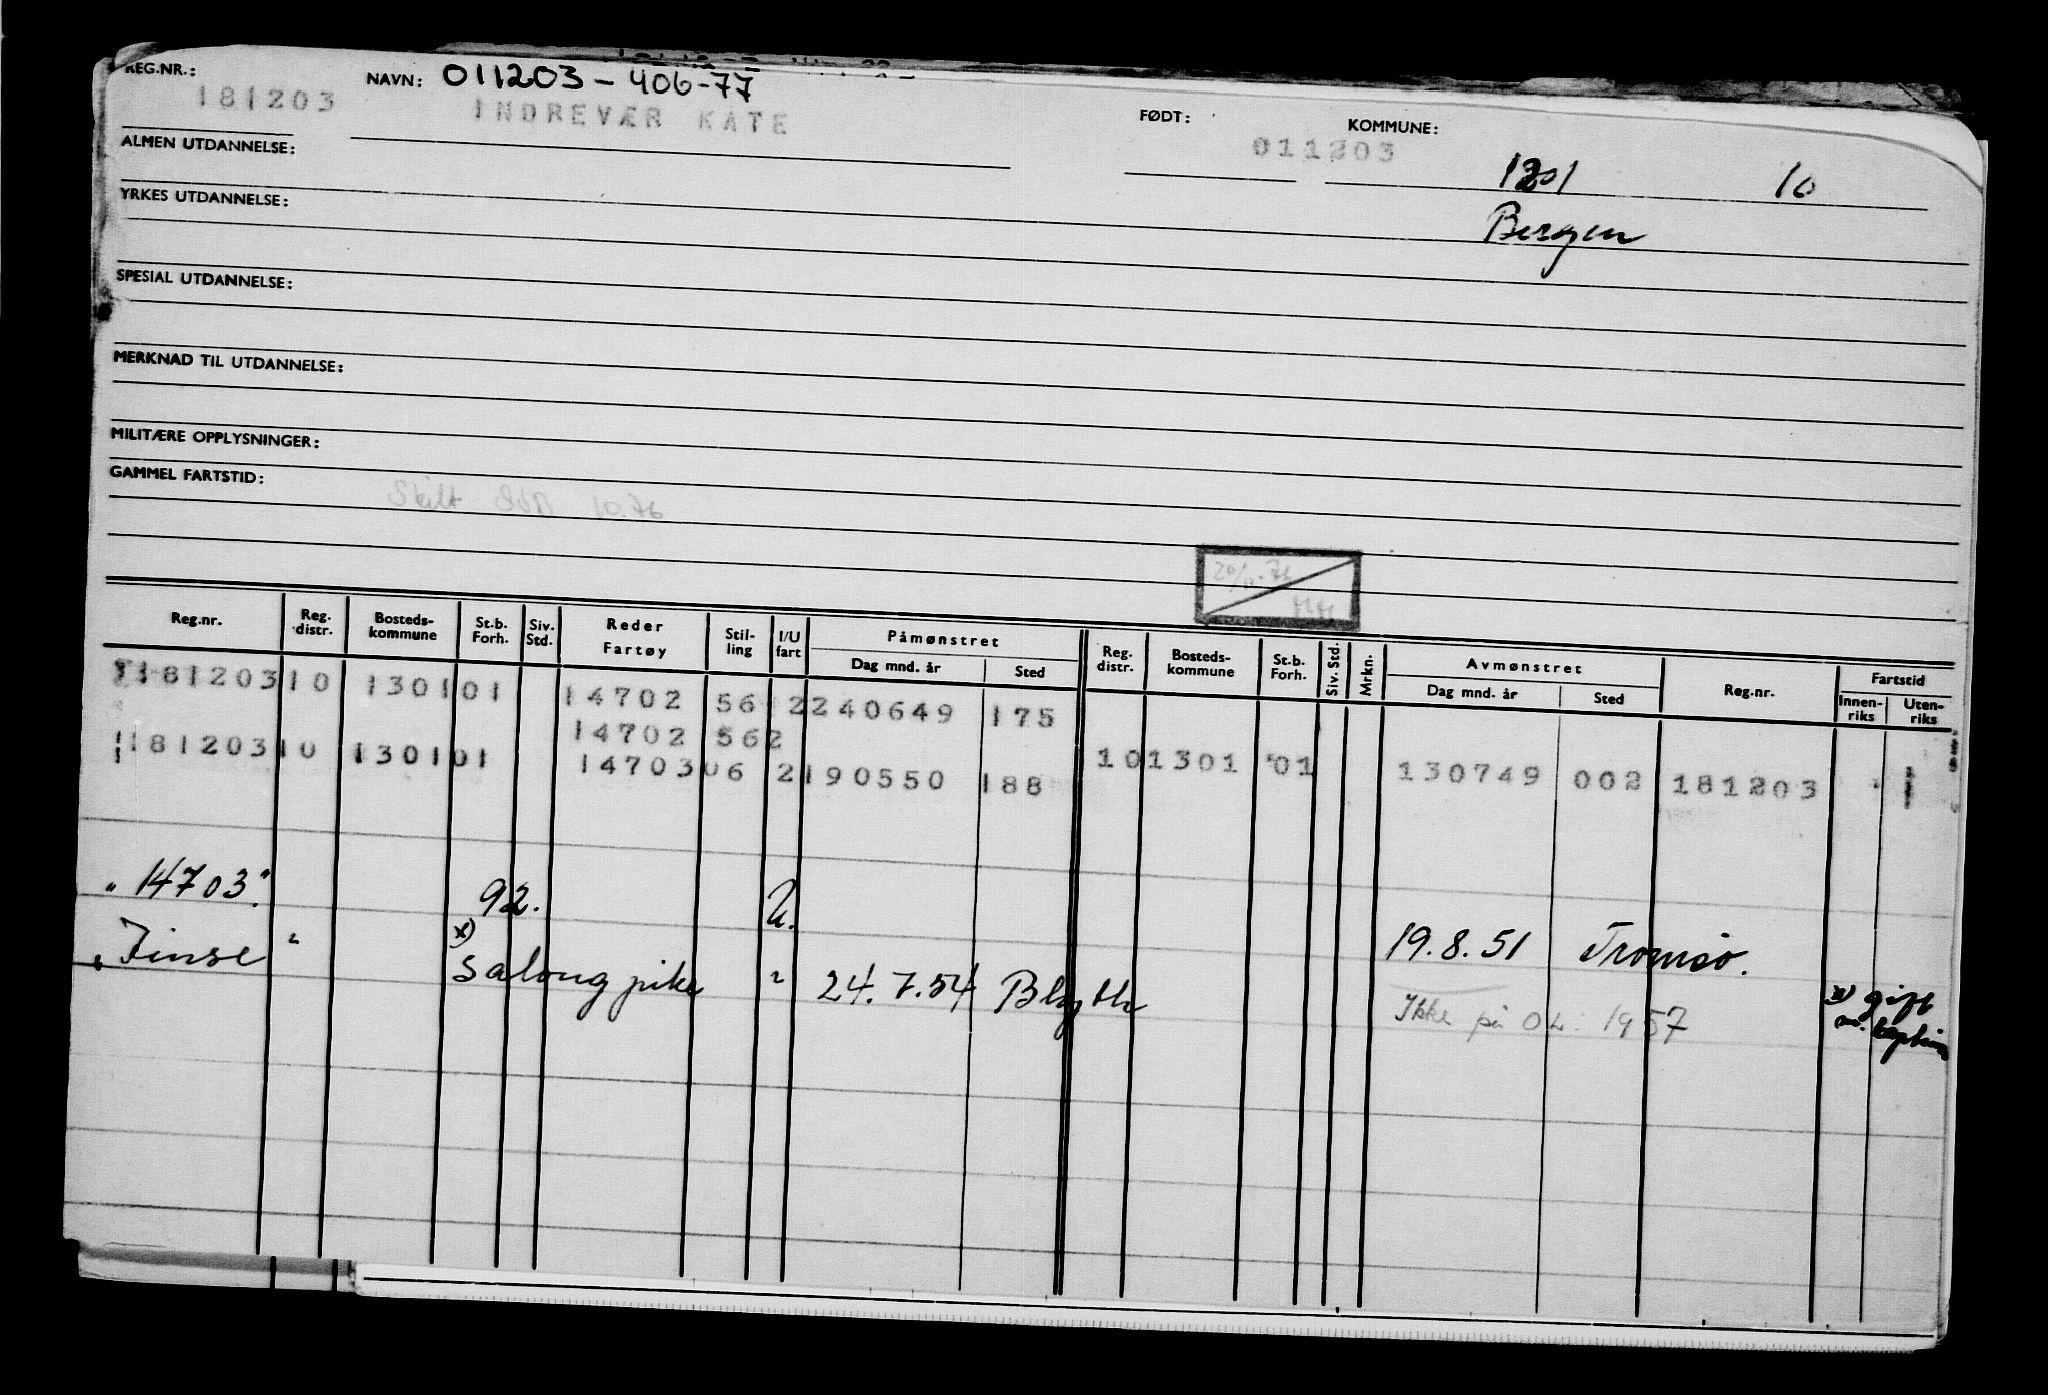 REG.NR.:
181203
NAVN: 011203-406-77
INDREVÆR KATE
FØDT:
011203
KOMMUNE:
1201 10
Bergen
ALMEN UTDANNELSE:
YRKES UTDANNELSE:
SPESIAL UTDANNELSE:
MERKNAD TIL UTDANNELSE:
MILITÆRE OPPLYSNINGER:
GAMMEL FARTSTID:
10.76
Reg.nr. Reg. distr. Bosteds-kommune St.b. Forh. Siv. Std. Reder Fartøy Stil-ling I/U fart Påmønstret Dag mnd. år Sted Reg. distr. Bosteds-kommune St.b. Forh. Siv. Std. Mrkn. Avmønstret Dag mnd. år Sted Reg.nr. Fartstid Innen-riks Uten-riks
181203 10 1301 01 14702 56 2 240649 175
14702 562
181203 10 1301 01 14703 06 2 190550 188 10 1301 01 130749 002 181203
"14703" 92. U. 19.8.51 Tromsø.
"Finse " x) Salongpike " 24.7.54 Blyth
Ikke på 1957
x) gift
m. kaptein